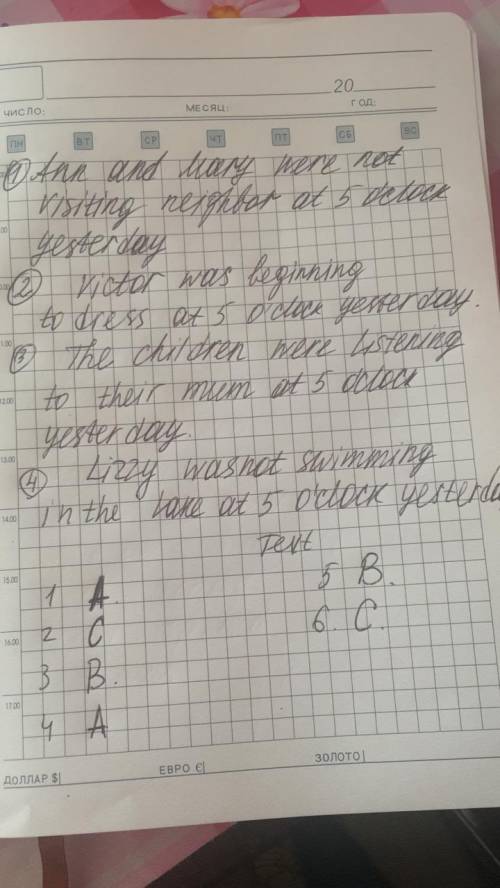 20
ЧИСЛО: МЕСЯЦ: ГОД:
ПН ВТ СР ЧТ ПТ СБ ВС
1 Ann and Mary were not
visiting neighbor at 5 o'clock
yesterday
2 Victor was beginning
to dress at 5 o'clock yesterday.
3 The children were listening
to their mum at 5 o'clock
12.00
yesterday.
13.00
4 Lizzy was not swimming
in the lake at 5 o'clock yesterda
14.00
Text
15.00
1 A. 5 B.
2 C 6. C.
16.00
3 B.
17.00
4 A
ДОЛЛАР $| ЕВРО €| ЗОЛОТО|